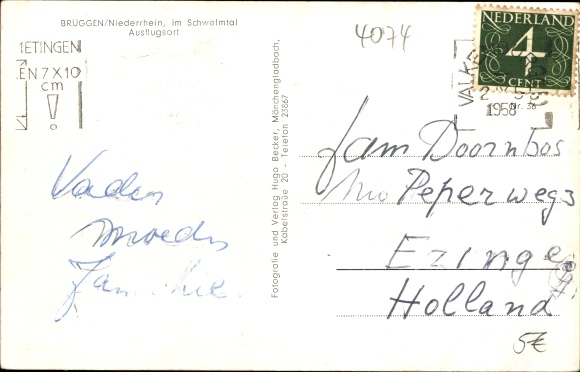 BRÜGGEN/Niederrhein, im Schwelmtal
Ausflugsort
ETINGEN
EN 7 X 10
cm
!
4074
NEDERLAND
4
CENT
VALKE
1958
Fotografie und Verlag Hugo Becker, Mönchengladbach,
Kabelstraße 20 - Telefon 23867
Vader
moeder
Fam Doornbos
Peperweg 3
Ezinge
Holland
5€